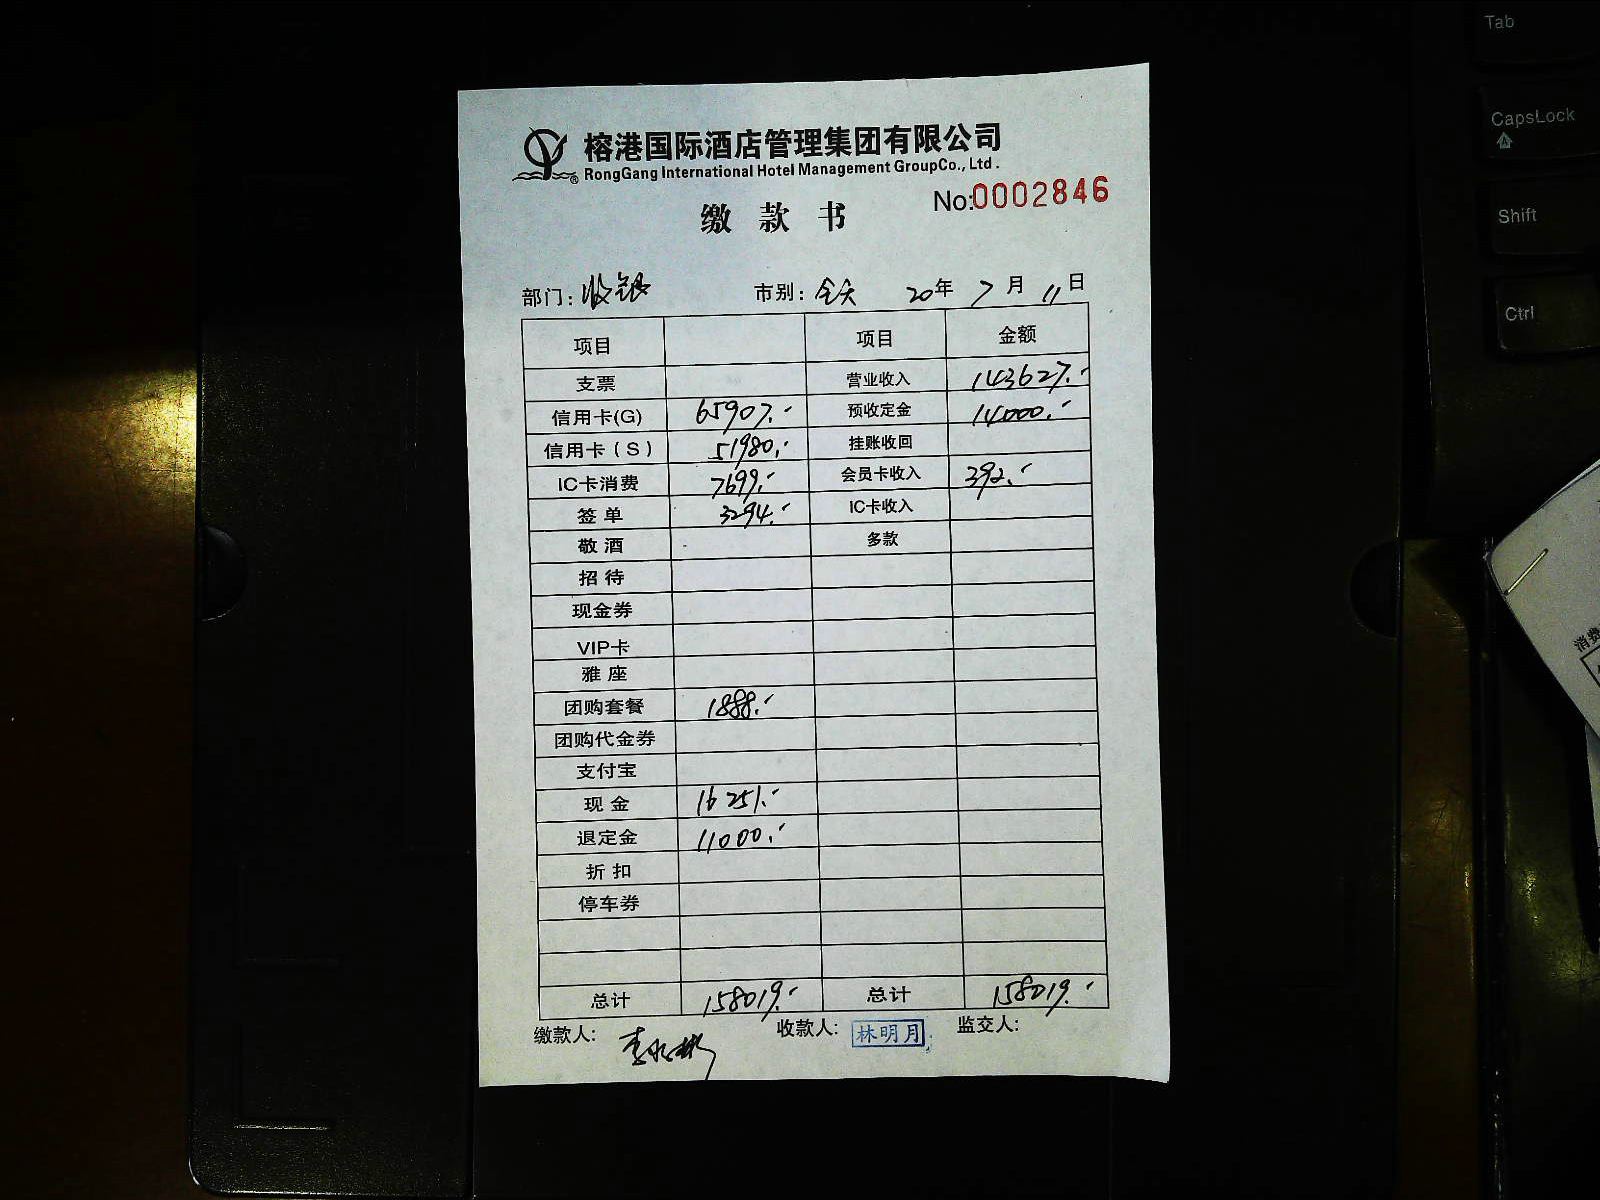 榕港国际酒店管理集团有限公司
RongGang International Hotel Management GroupCo., Ltd.
No:0002846
缴款书
部门: 收银 市别: 全天 20年 7月 11日
项目 项目 金额
支票 营业收入 143627.-
信用卡(G) 65907.- 预收定金 14000.-
信用卡(S) 51980.- 挂账收回
IC卡消费 7699.- 会员卡收入 392.-
签单 3294.- IC卡收入
敬酒 多款
招待
现金券
VIP卡
雅座
团购套餐 1888.-
团购代金券
支付宝
现金 16251.-
退定金 11000.-
折扣
停车券
总计 158019.- 总计 158019.-
缴款人: 收款人: 林明月 监交人:
Tab
CapsLock
Shift
Ctrl
消费